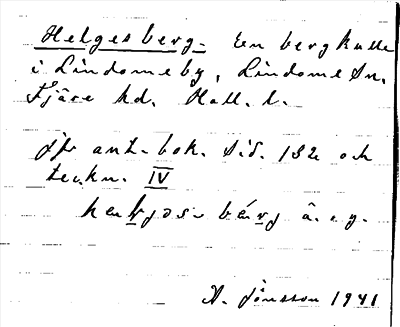 Helgesberg. En bergkulle
i Lindomeby, Lindome Sn.
Fjäre hd. Hall. l.
jfr ant. bok. sid. 132 och
teckn. IV
bärj å. e. g.
A. Jönsson 1941